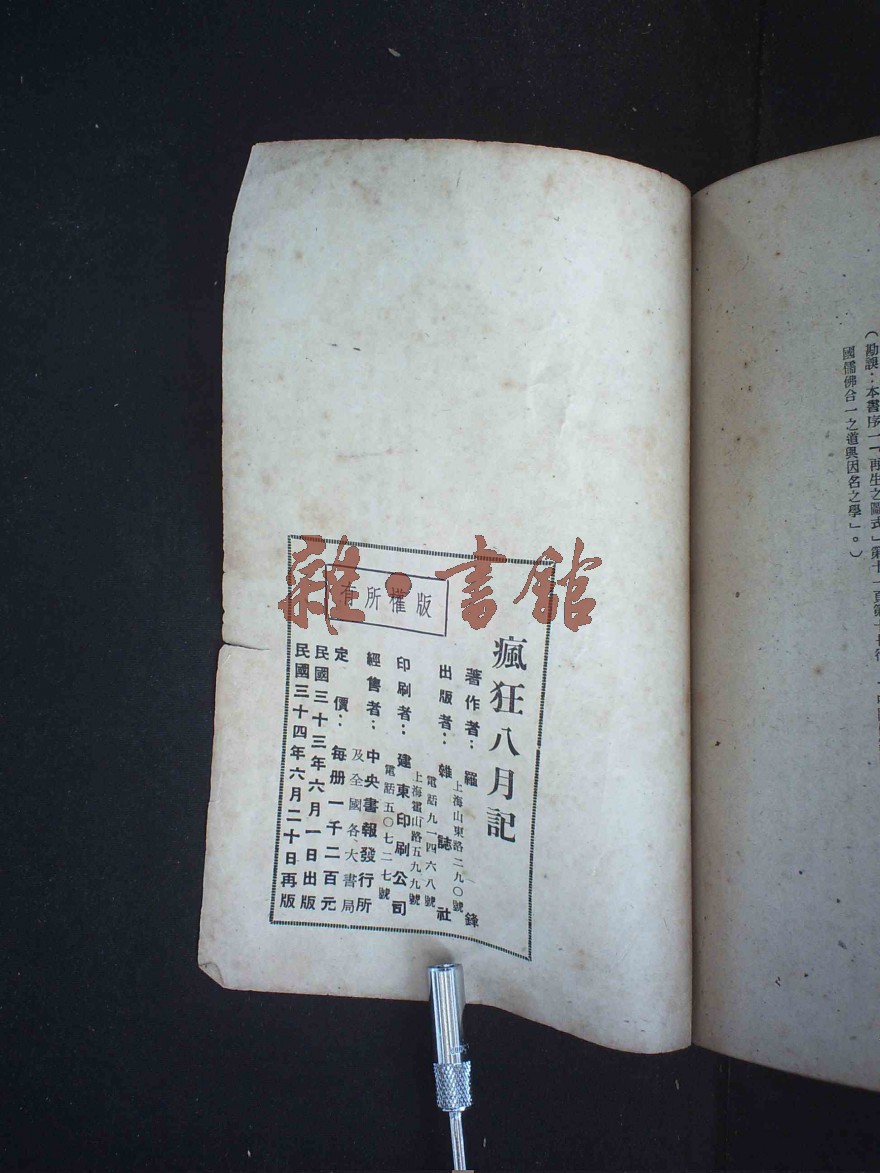 (勘誤：本書序一「再生之圖式」第十一頁第十
國儒佛合一之道與因名之學」。)
雜·書館
版權所有
瘋狂八月記
著作者：羅 鋒
出版者：雜誌社
上海山東路二九〇號
電話九一四六八號
印刷者：建東印刷公司
上海霍山路五九九號
電話五〇七二七號
經售者：中央書報發行所
及全國各大書局
定 價：每册一千二百元
民國三十三年六月一日出版
民國三十四年六月二十日再版